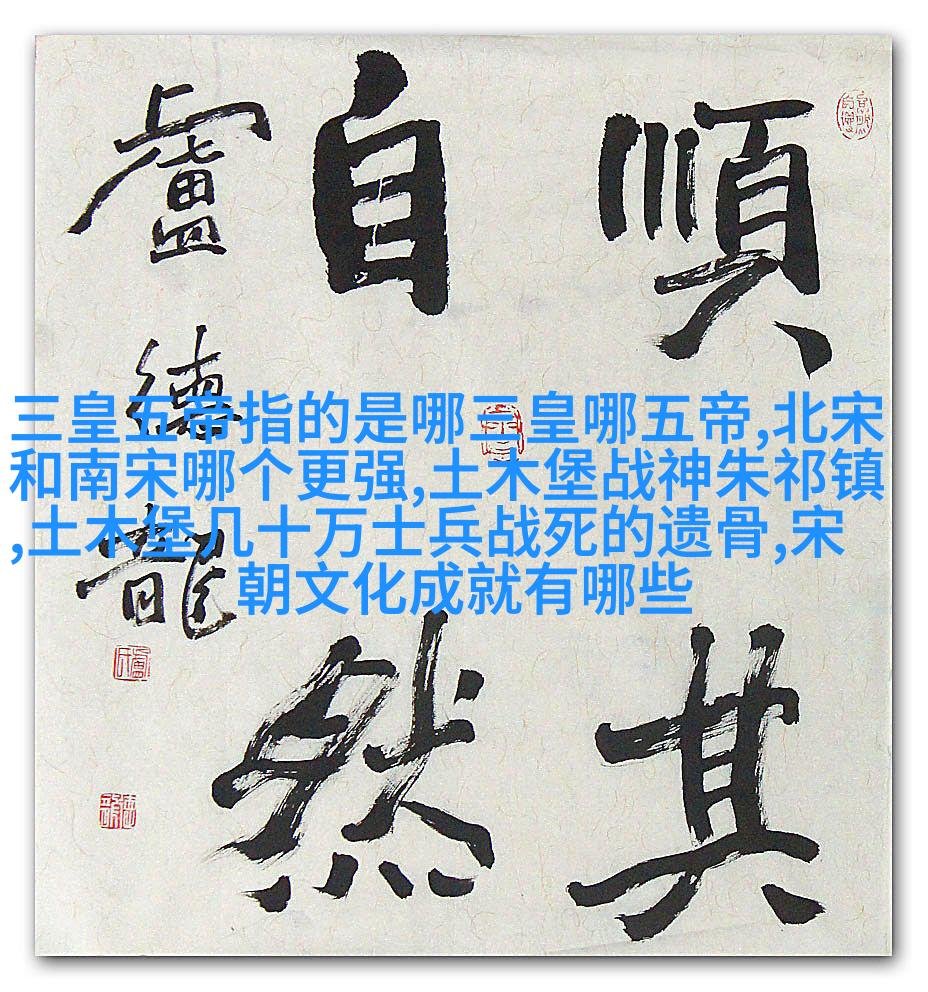 順其
自然
盧德龍
三皇五帝指的是哪三皇哪五帝,北宋
和南宋哪个更强,土木堡战神朱祁镇
,土木堡几十万士兵战死的遗骨,宋
朝文化成就有哪些